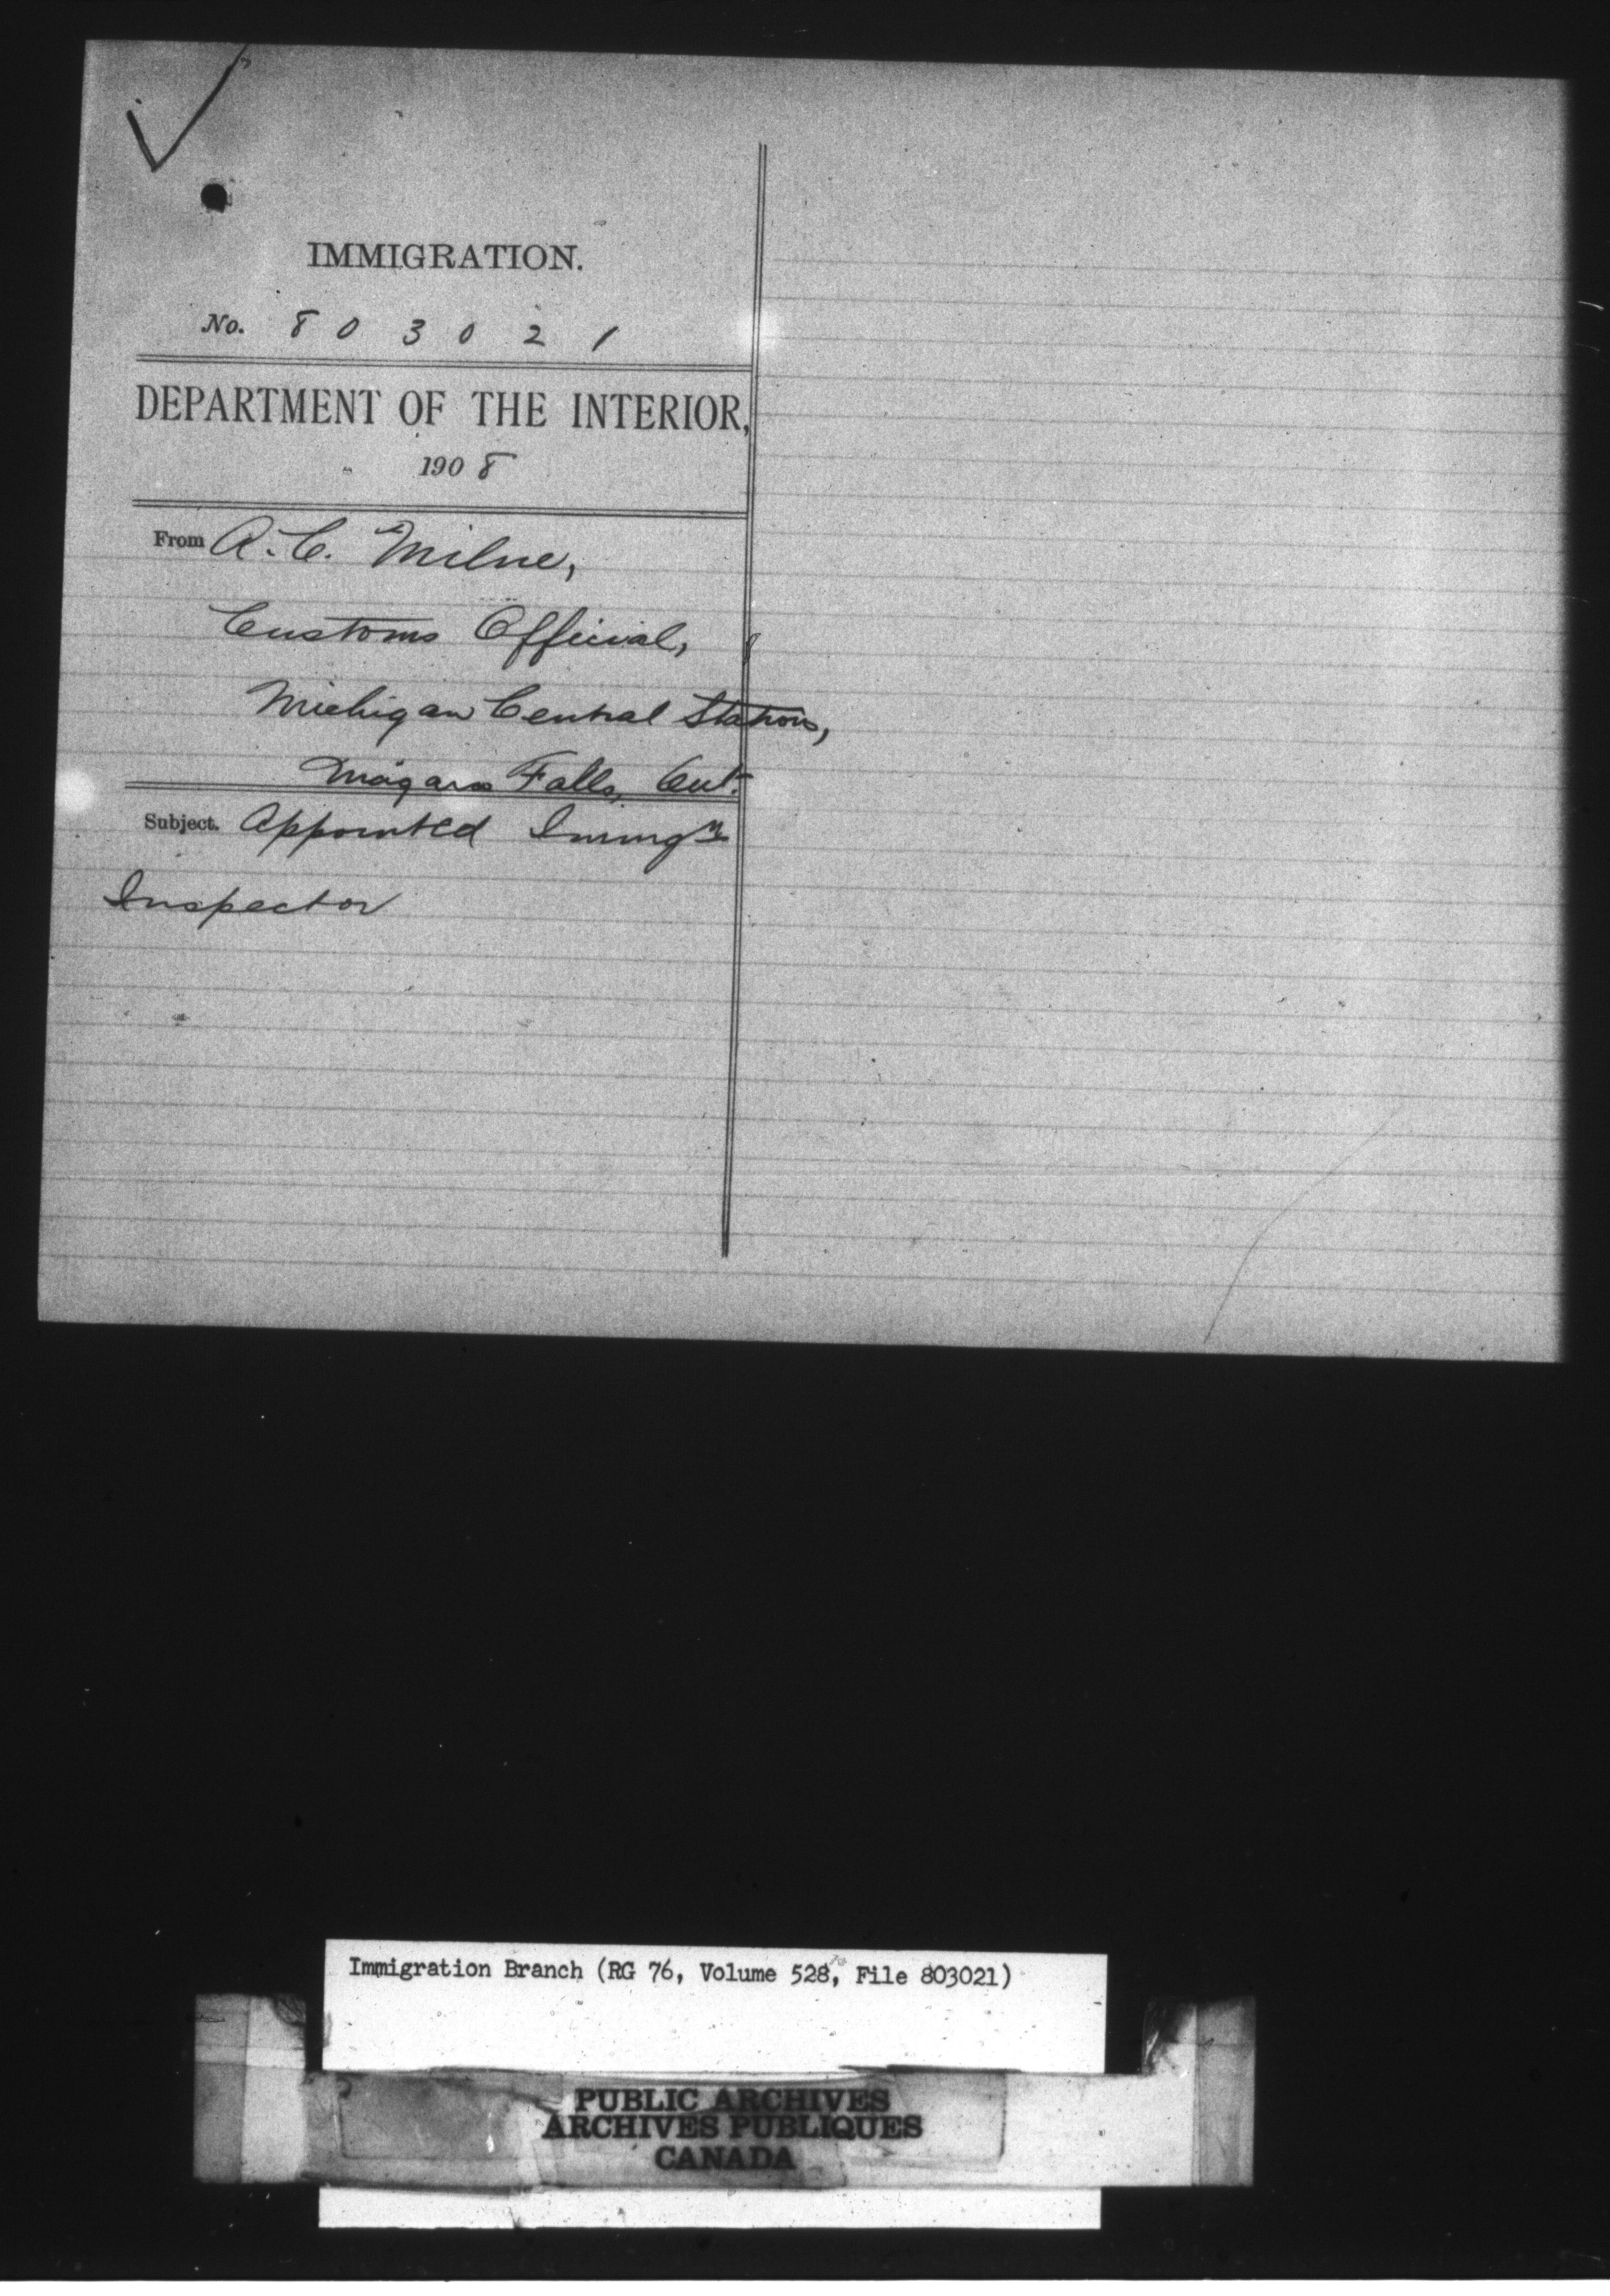 IMMIGRATION.
No. 803021
DEPARTMENT OF THE INTERIOR,
1908
From A. C. Milne,
Customs Official,
Michigan Central Station,
Niagara Falls, Ont.
Subject. Appointed Immign
Inspector
Immigration Branch (RG 76, Volume 528, File 803021)
PUBLIC ARCHIVES
ARCHIVES PUBLIQUES
CANADA